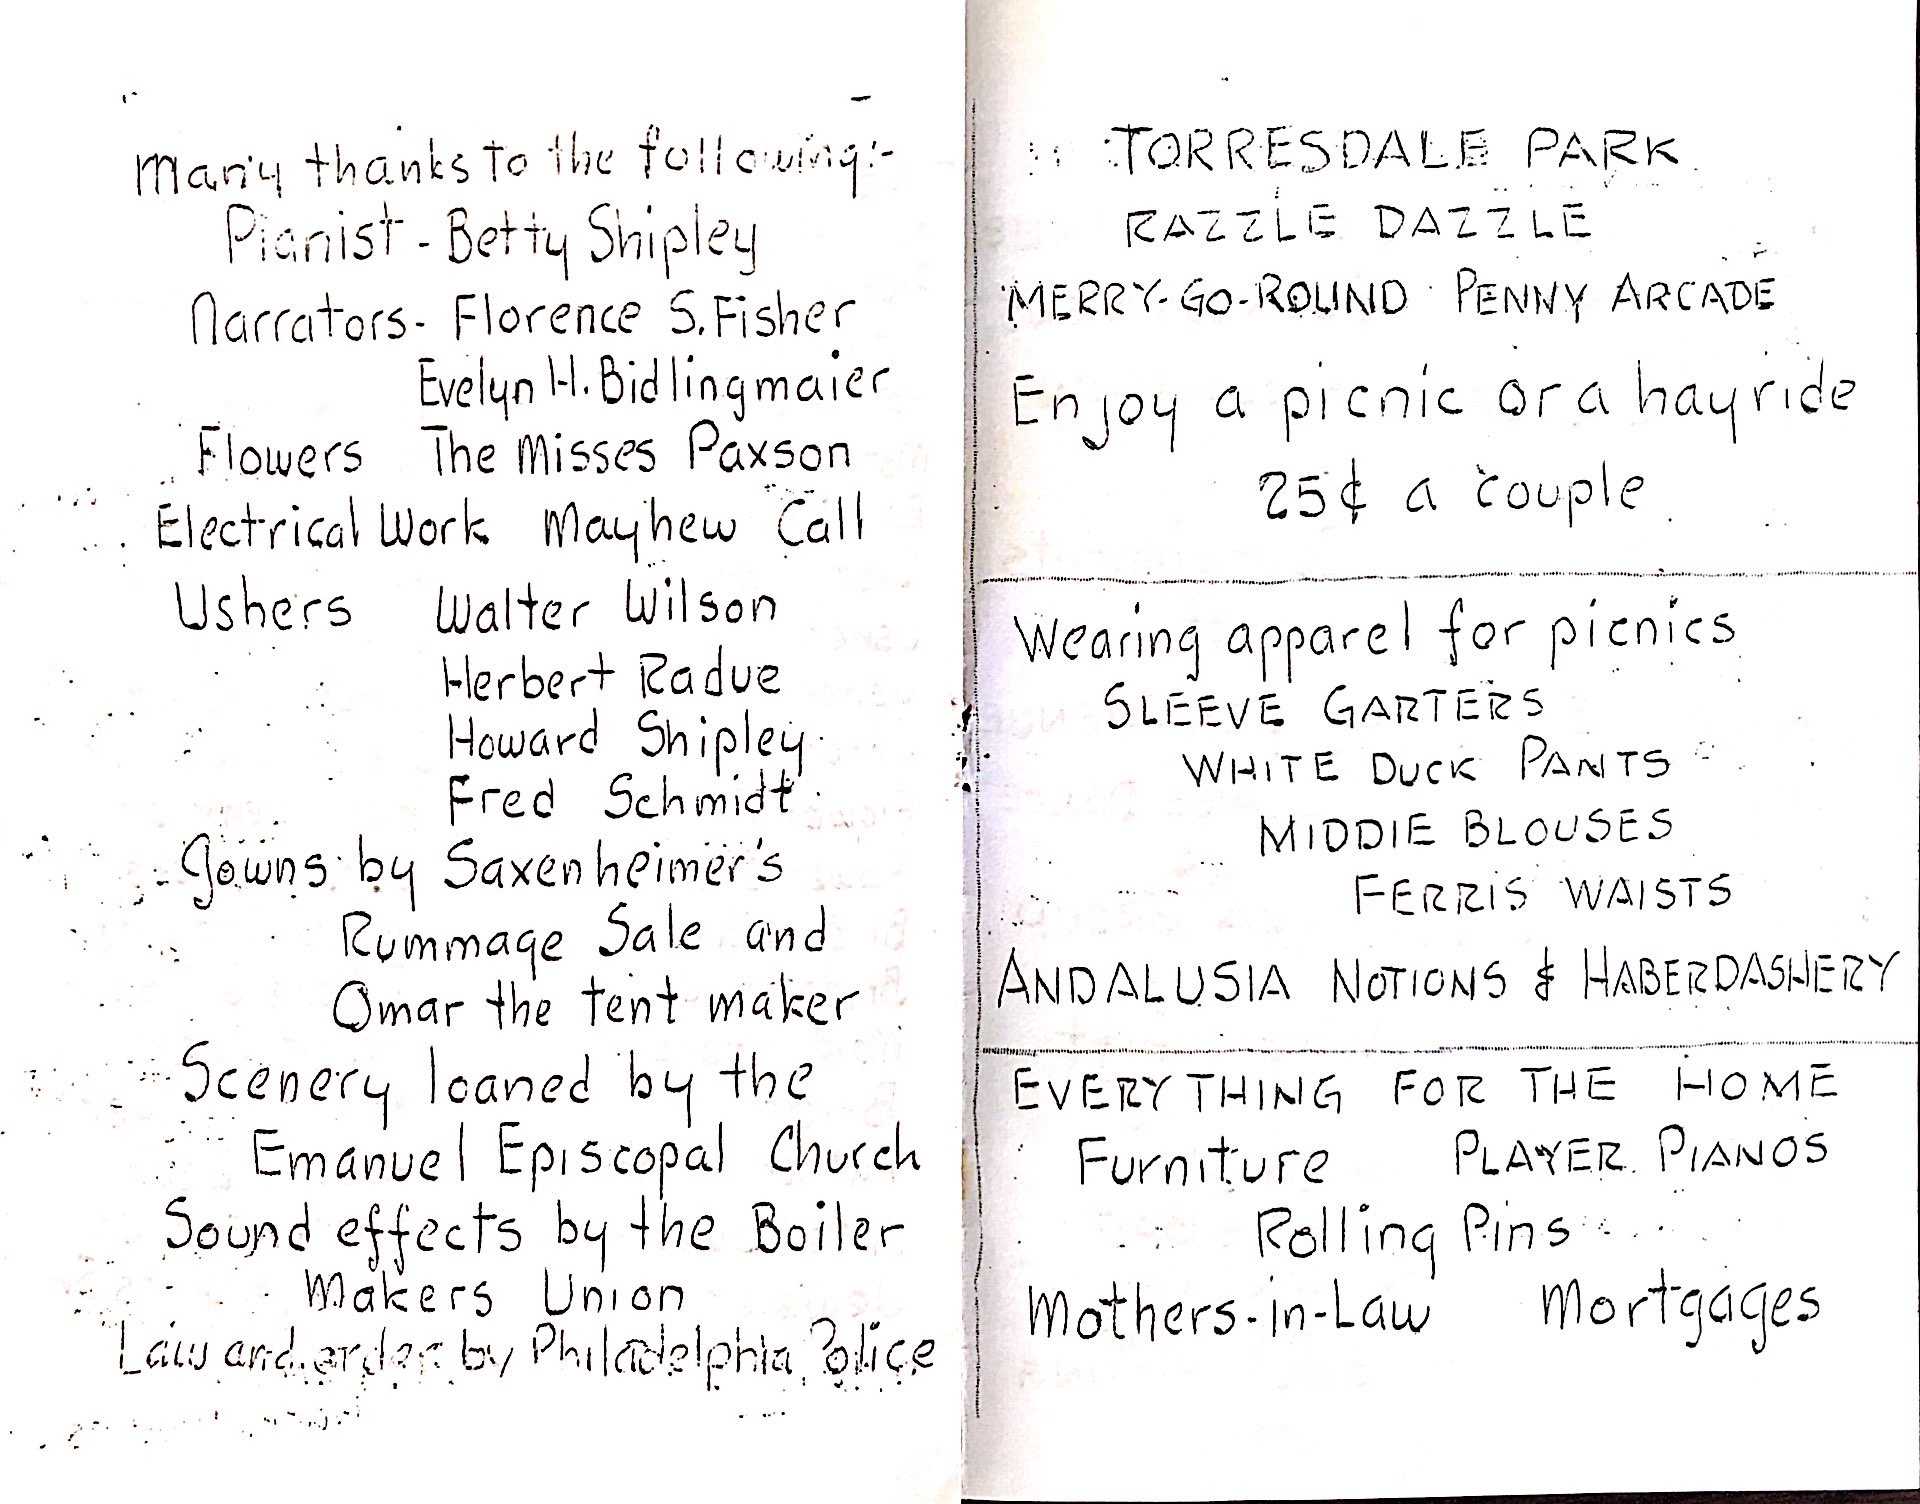 Many thanks to the following:-
Pianist - Betty Shipley
Narrators - Florence S. Fisher
Evelyn H. Bidlingmaier
Flowers The Misses Paxson
Electrical Work Mayhew Call
Ushers Walter Wilson
Herbert Radue
Howard Shipley
Fred Schmidt
Gowns by Saxenheimer's
Rummage Sale and
Omar the tent maker
Scenery loaned by the
Emanuel Episcopal Church
Sound effects by the Boiler
Makers Union
Law and order by Philadelphia Police
TORRESDALE PARK
RAZZLE DAZZLE
MERRY-GO-ROUND PENNY ARCADE
Enjoy a picnic or a hayride
25¢ a couple
Wearing apparel for picnics
SLEEVE GARTERS
WHITE DUCK PANTS
MIDDIE BLOUSES
FERRIS WAISTS
ANDALUSIA NOTIONS & HABERDASHERY
EVERYTHING FOR THE HOME
Furniture PLAYER PIANOS
Rolling Pins
Mothers-in-Law Mortgages